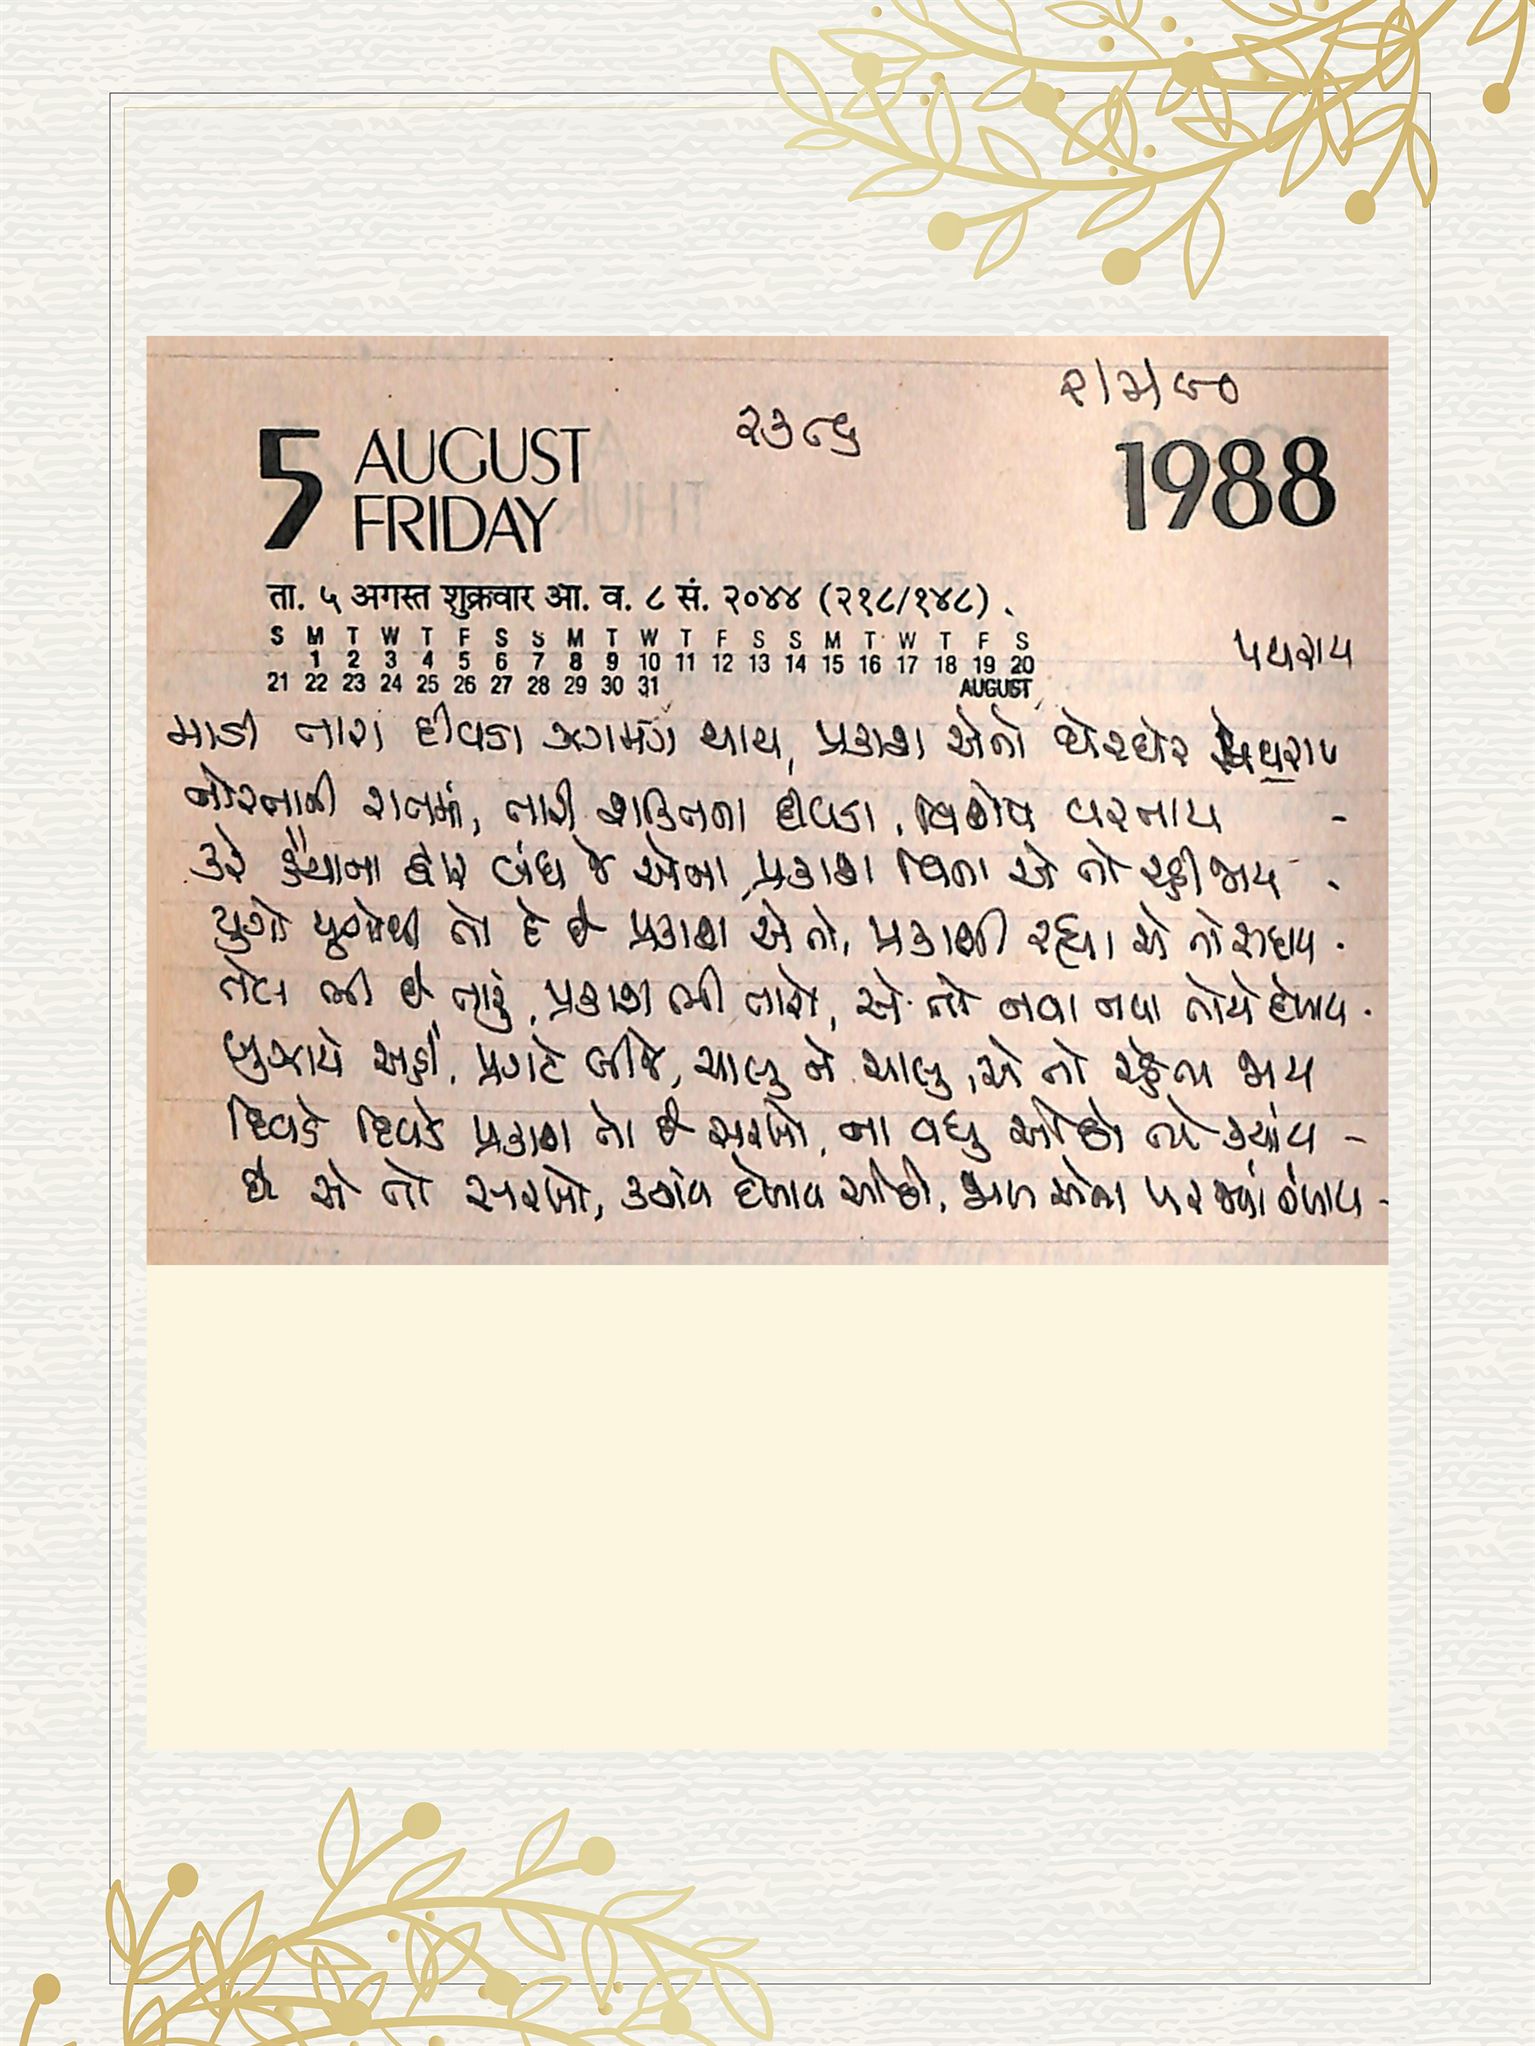 ૨/૩/૯૦
૨૩૯૬
5 AUGUST 1988
FRIDAY
ता. ५ अगस्त शुक्रवार आ. व. ८ सं. २०४४ (२१८/१४८)
S M T W T F S S M T W T F S S M T W T F S
1 2 3 4 5 6 7 8 9 10 11 12 13 14 15 16 17 18 19 20
21 22 23 24 25 26 27 28 29 30 31 AUGUST
પથરાય
માડી તારા દીવડા ઝગમગ થાય, પ્રકાશ એનો ઘેરઘેર પથરાય
નોરતાની રાતમાં, તારી શક્તિના દીવડા, વિશેષ વરતાય -
કરે હૈયાના દ્વાર બંધ જે એના, પ્રકાશ વિના એ તો રહી જાય
યુગો યુગોથી તો દે છે પ્રકાશ એ તો, પ્રકાશી રહ્યા એ તો સદાય
તેલ ભી છે તારું, પ્રકાશ ભી તારો, એ તો નવા નવા તોયે દેખાય
બુઝાયે અહીં, પ્રગટે બીજે, ચાલુ ને ચાલુ, એ તો રહેતા જાય
દિવડે દિવડે પ્રકાશ તો છે સરખો, ના વધુ ઓછો તો ક્યાંય -
છે એ તો સરખો, કદીક દેખાય ઓછો, જાળ એના પર જ્યાં બંધાય -